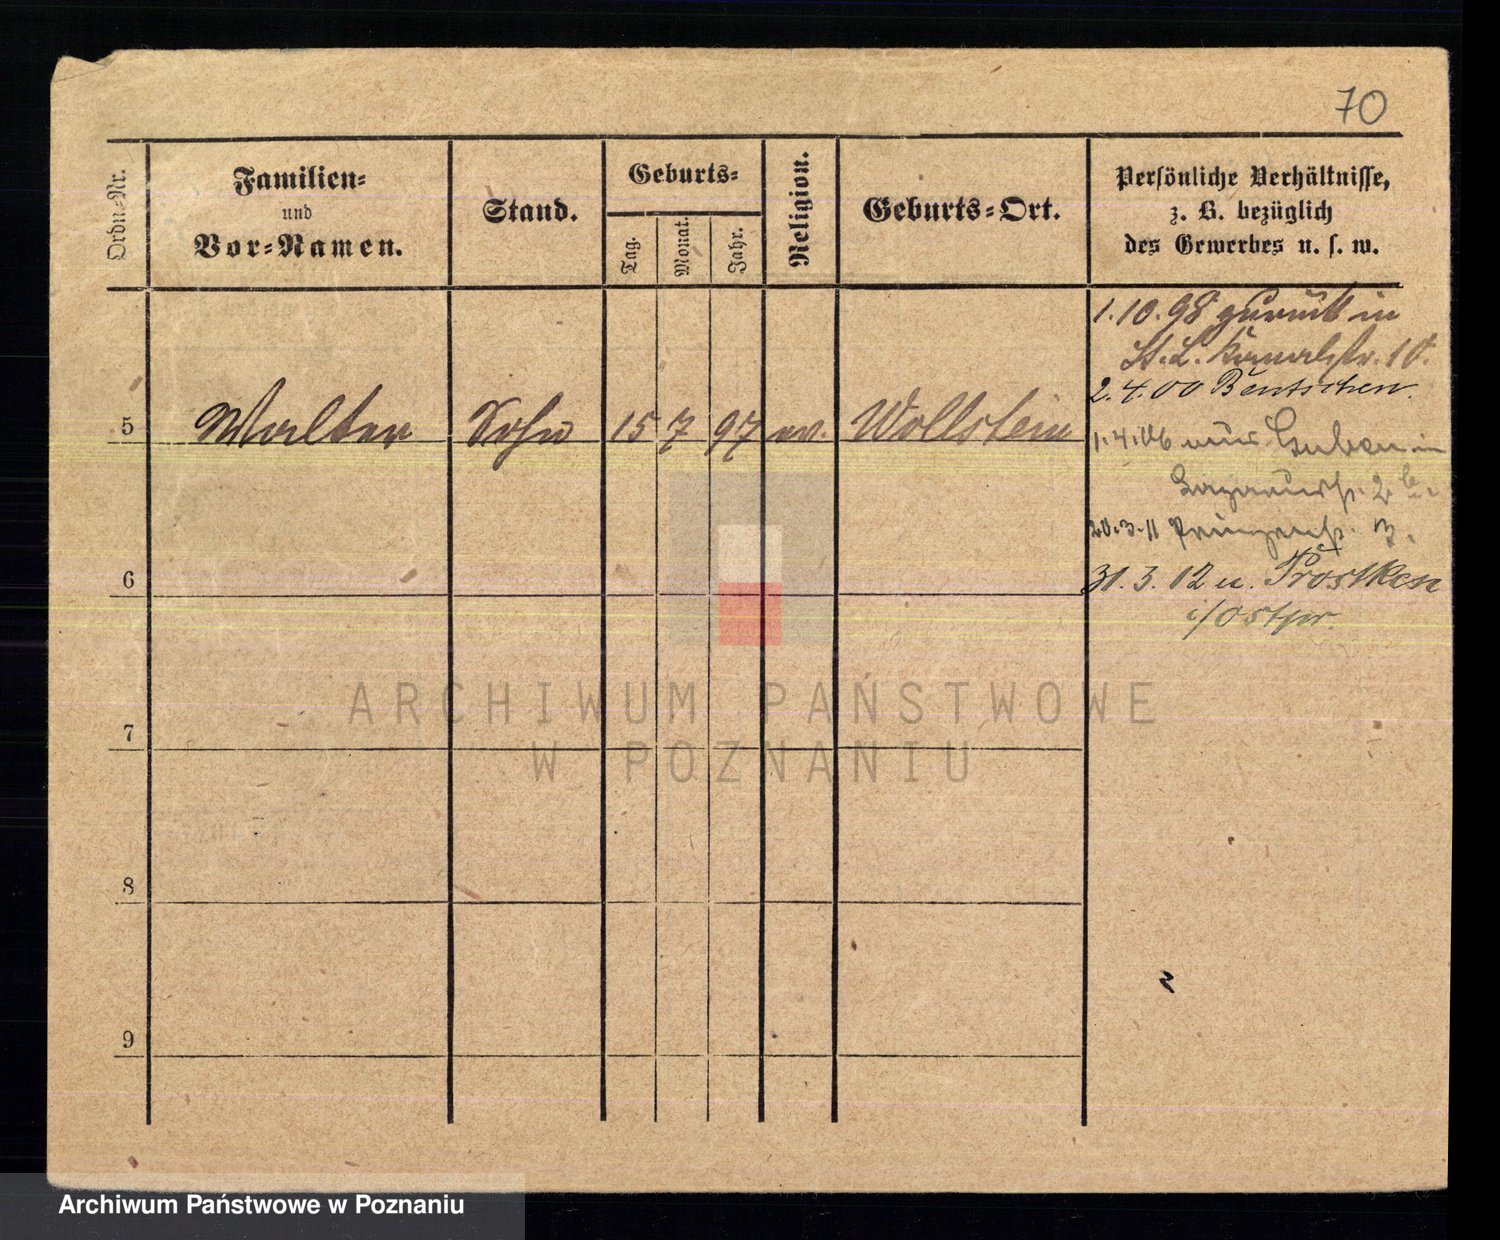 70
Ordn.-Nr.
Familien-
und
Vor-Namen.
Stand.
Geburts-
Tag.
Monat.
Jahr.
Religion.
Geburts-Ort.
Persönliche Verhältnisse,
z. B. bezüglich
des Gewerbes u. s. w.
1.10.98 zurück in
St. L. Kanalstr. 10.
2.4.00 Bentschen.
5 Walter Sohn 15 7 97 ev. Wollstein
1.4.06 aus Guben in
2
20.3.11 Prinzenstr. 3.
6
31.3.12 n. Prostken
i/Ostpr.
7
8
9
ARCHIWUM PAŃSTWOWE
W POZNANIU
Archiwum Państwowe w Poznaniu